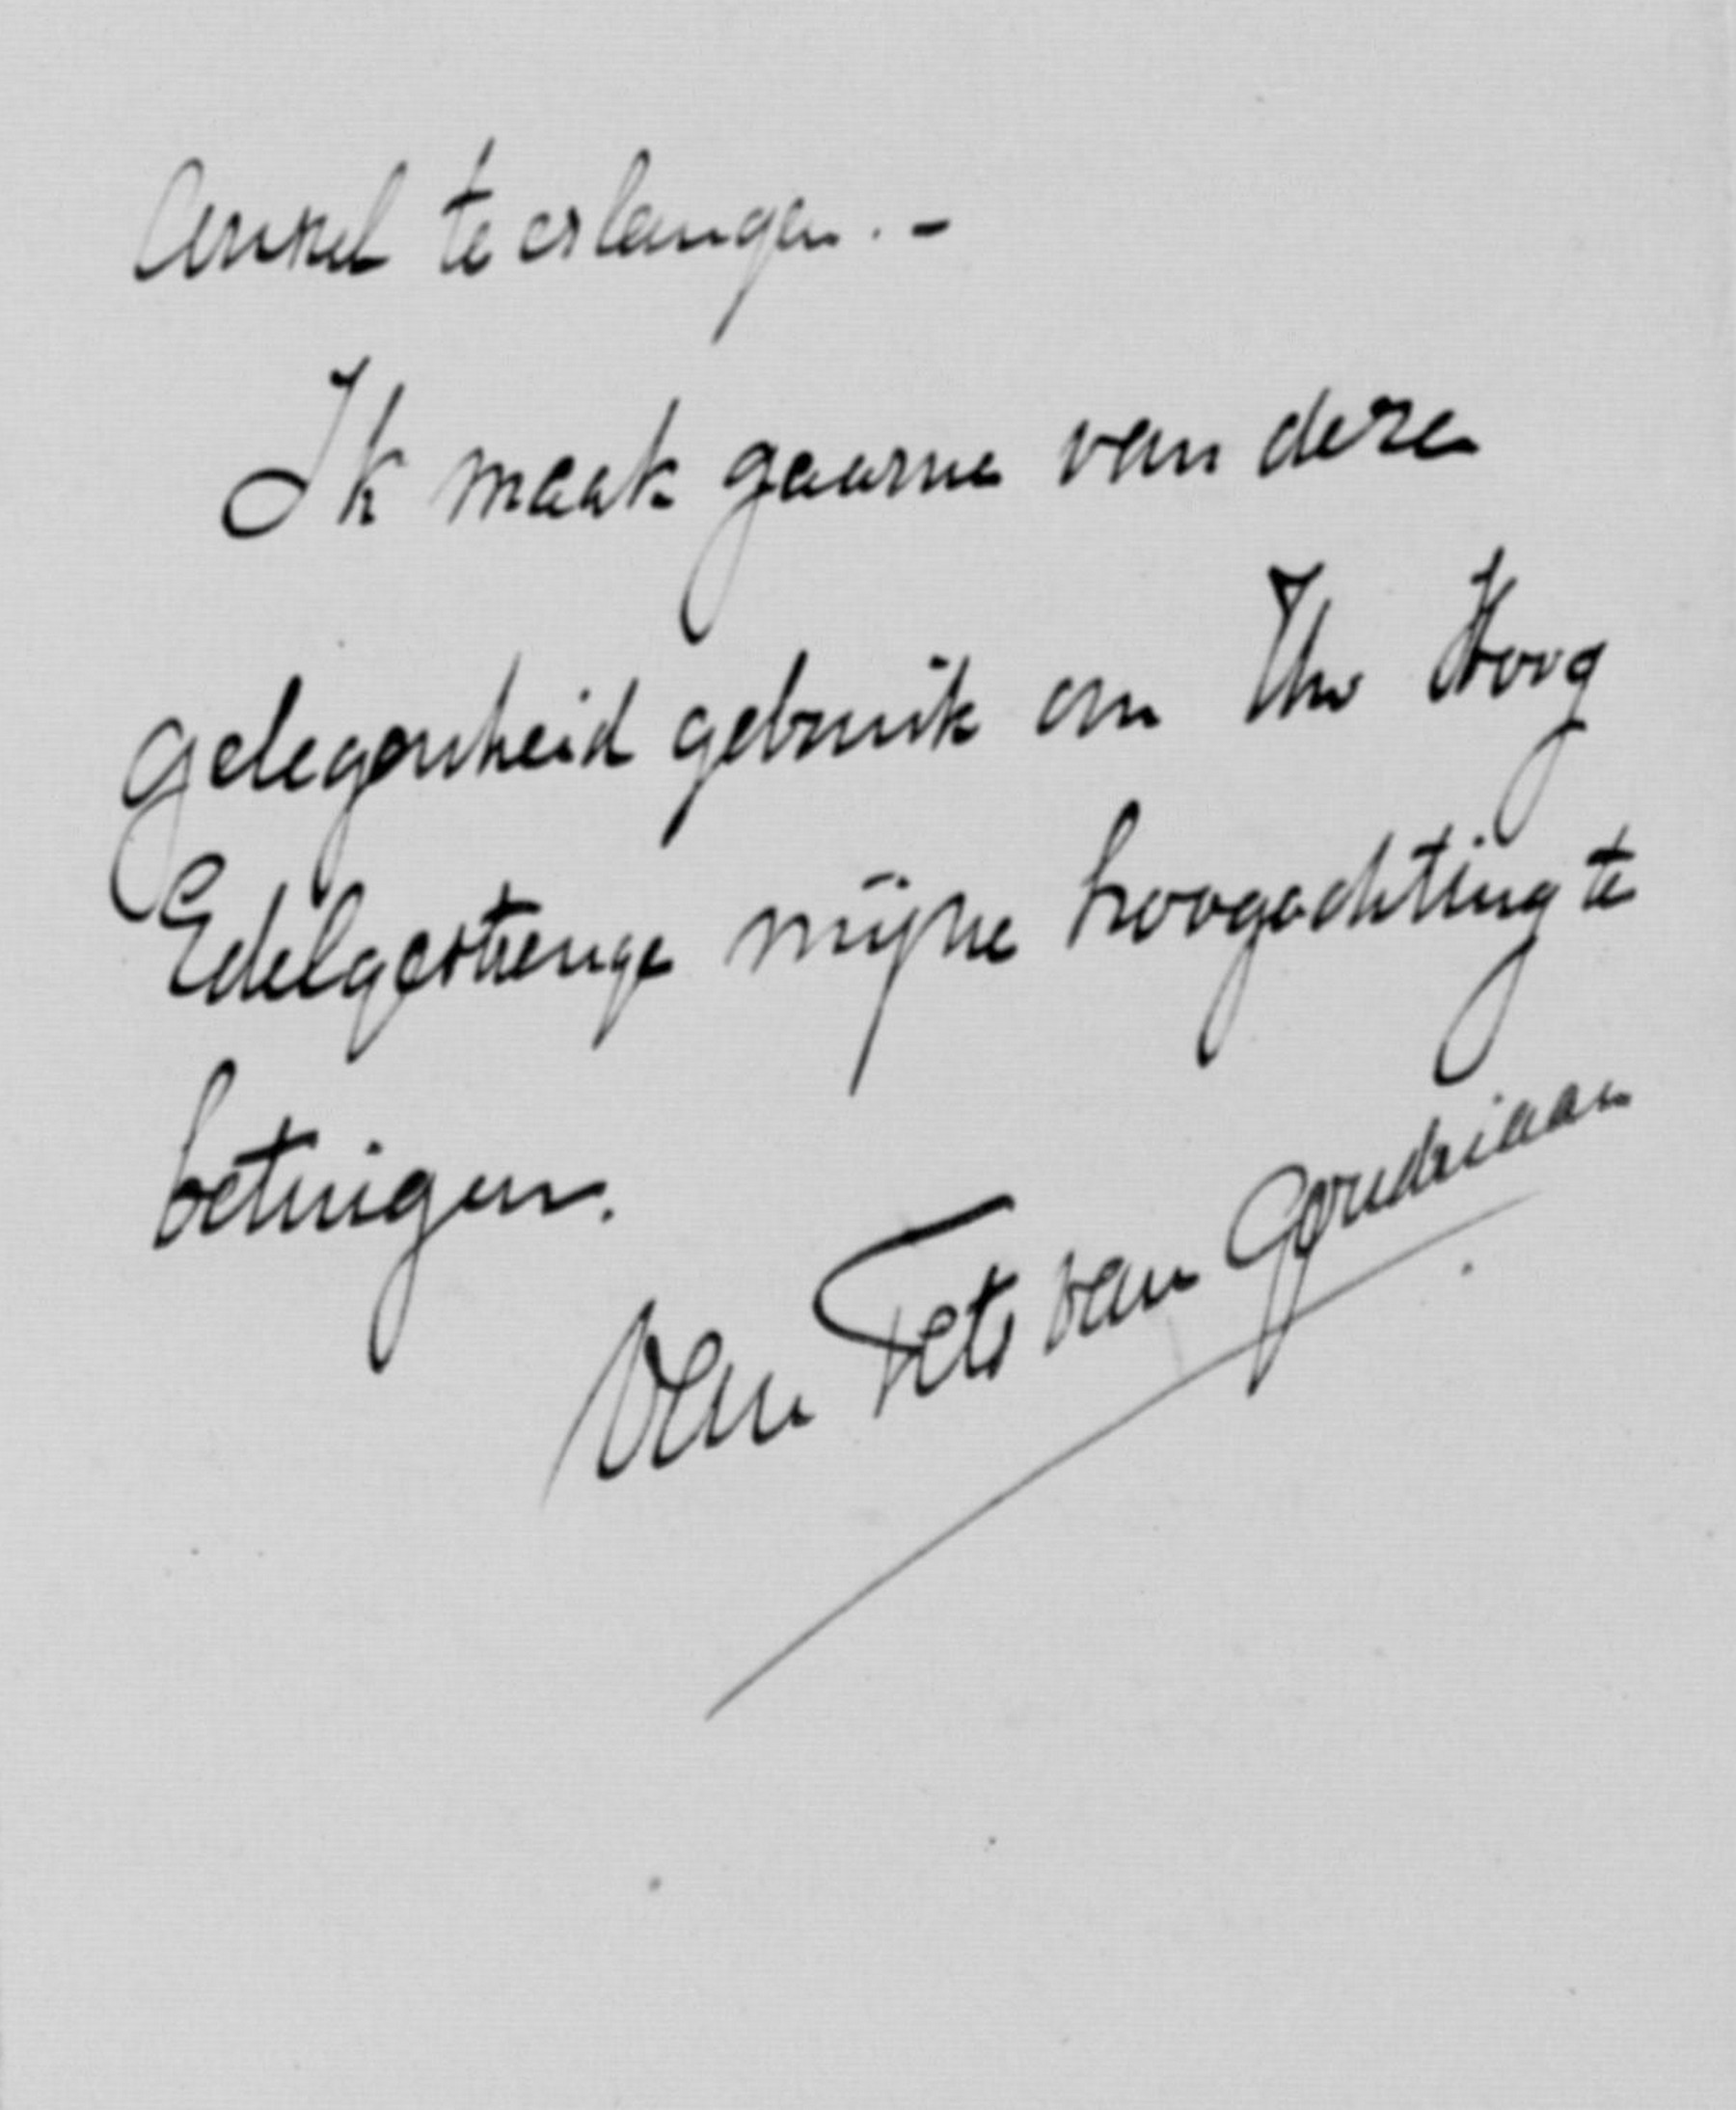 te erlangen. -
Ik maak gaarne van deze
gelegenheid gebruik om Uw Hoog
Edelgestrenge mijne hoogachting te
betuigen.
van Tets van Goudriaan